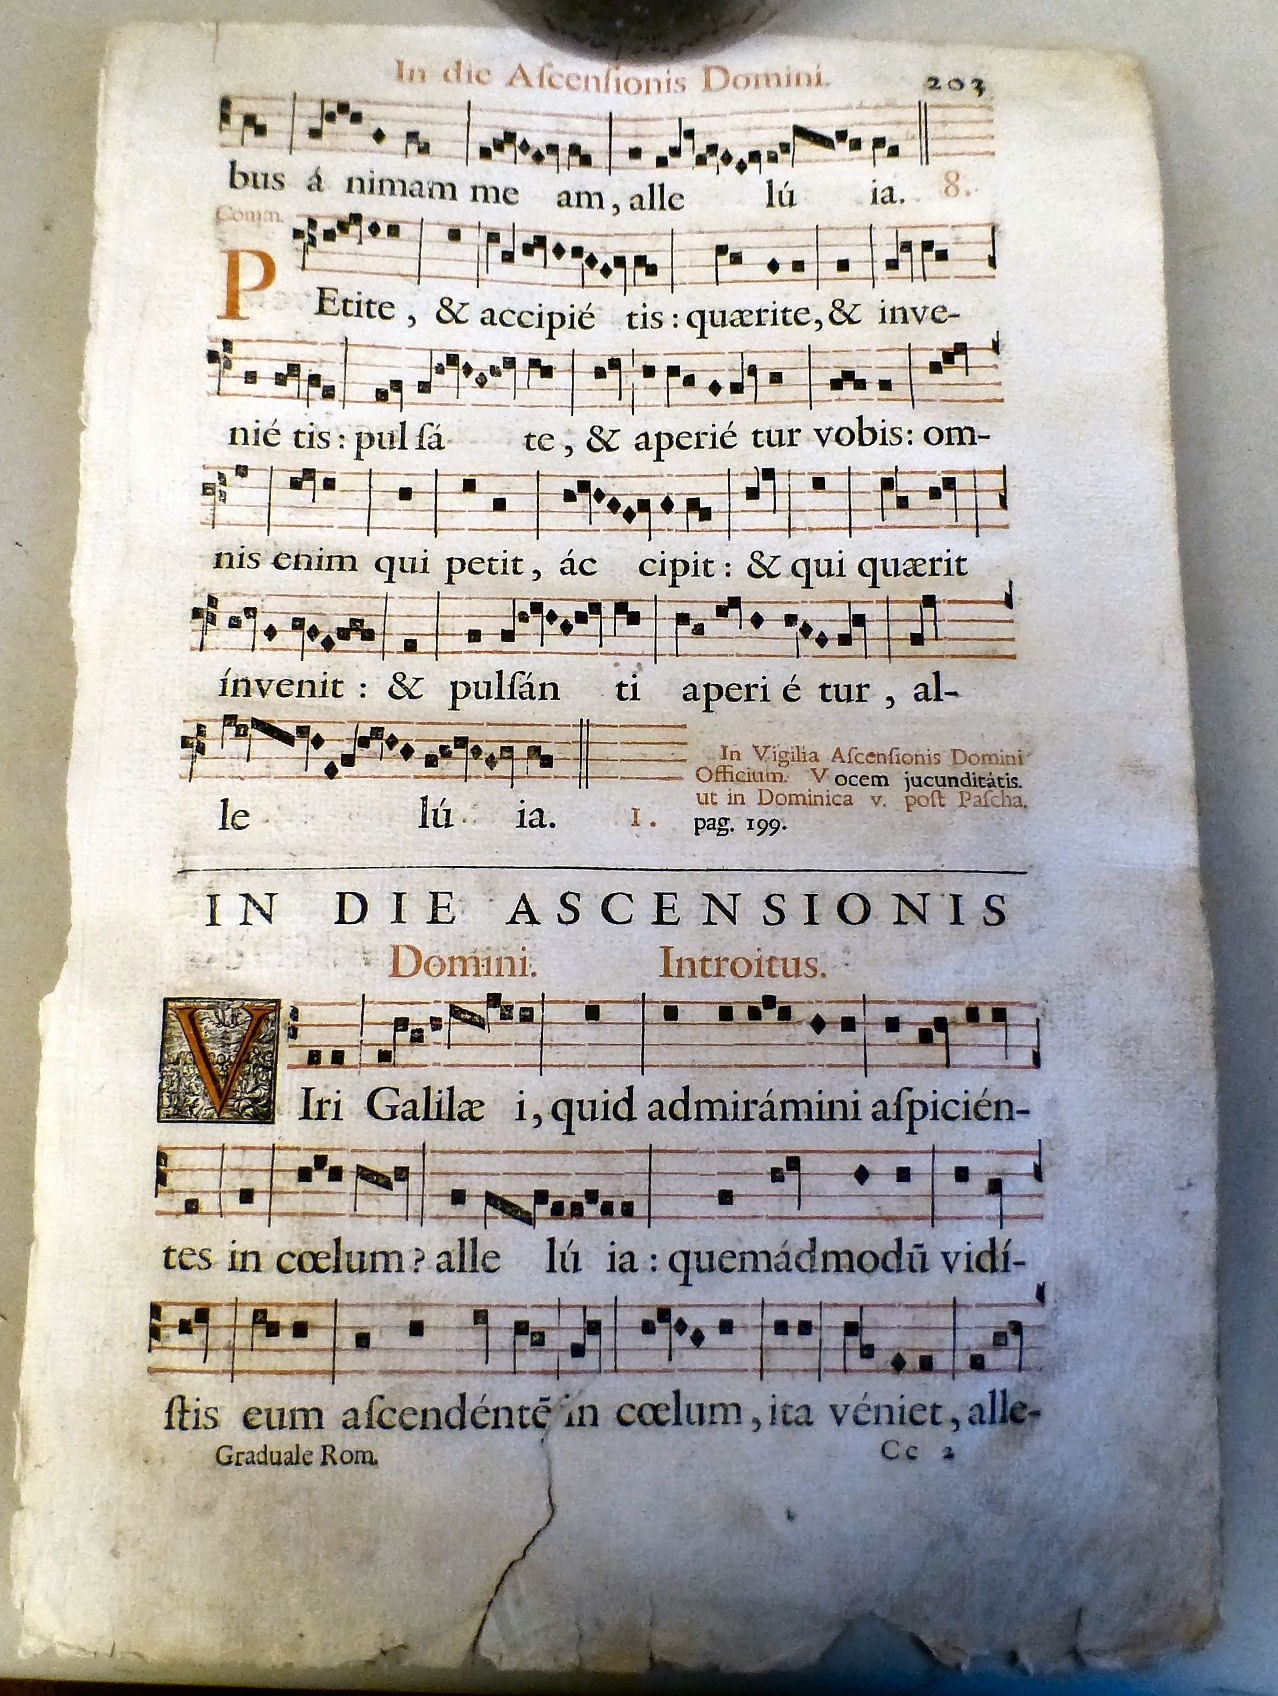 In die Aſcenſionis Domini. 203
bus á nimam me am, alle lú ia. 8.
Comm.
PEtite, & accipié tis: quærite, & inve-
nié tis: pul ſá te, & aperié tur vobis: om-
nis enim qui petit, ác cipit: & qui quærit
ínvenit: & pulſán ti aperi é tur, al-
le lú ia. 1.
In Vigilia Aſcenſionis Domini
Officium. Vocem jucunditátis.
ut in Dominica v. poſt Paſcha,
pag. 199.
IN DIE ASCENSIONIS
Domini. Introitus.
VIri Galilæ i, quid admirámini aſpicién-
tes in cœlum? alle lú ia: quemádmodū vidí-
ſtis eum aſcendéntē in cœlum, ita véniet, alle-
Graduale Rom. Cc 2